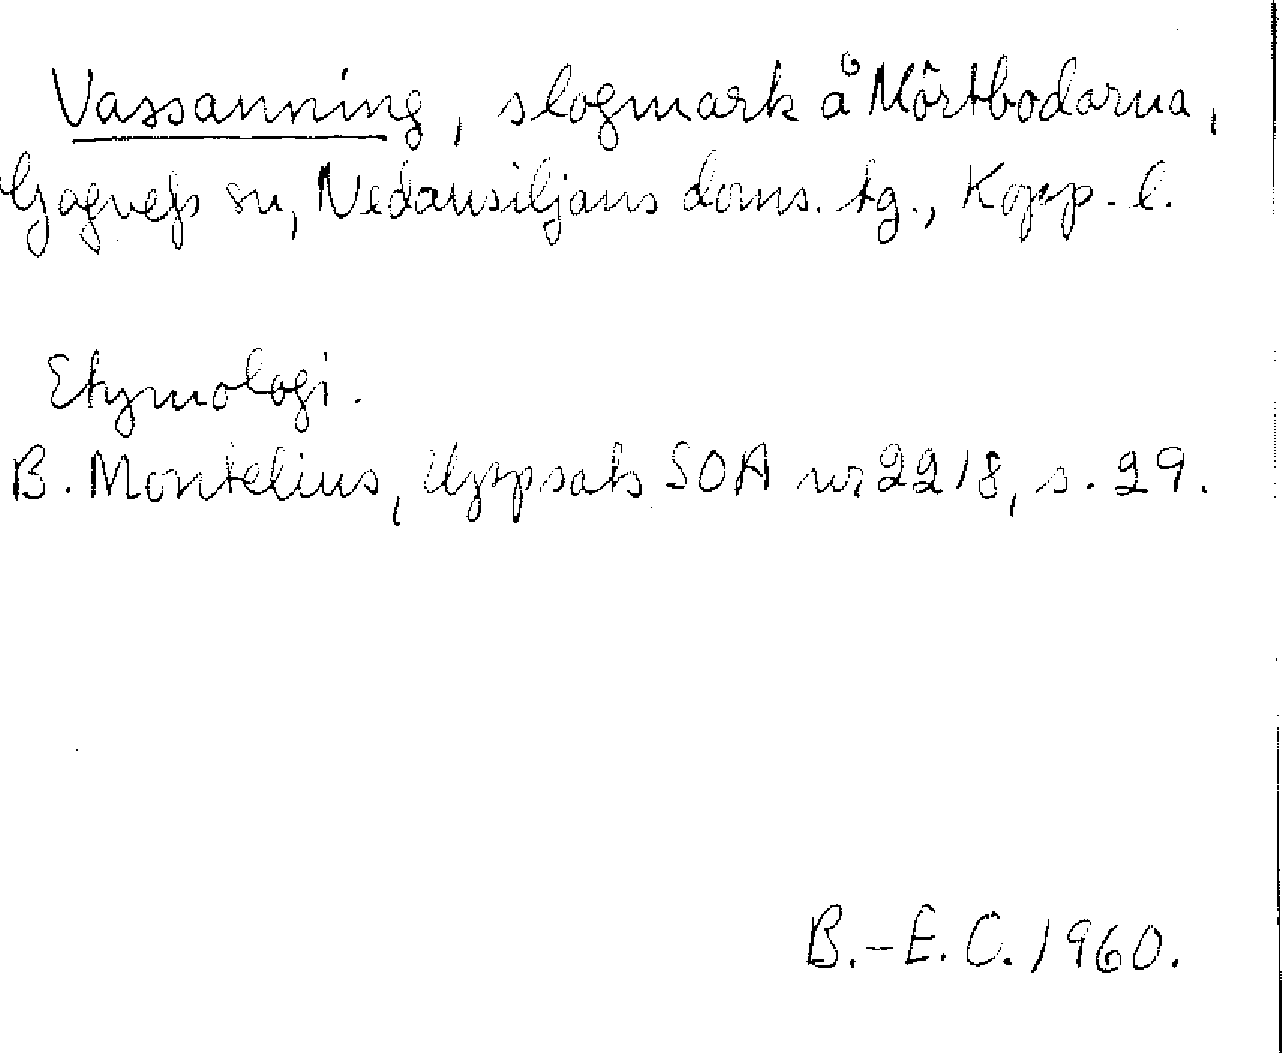 Vassanning, slogmark å Mörtbodarna,
Gagnefs sn, Nedansiljans doms. tg., Kopp. l.
Etymologi.
B. Montelius, Uppsats SOA nr 2218, s. 29.
B.-E. C. 1960.